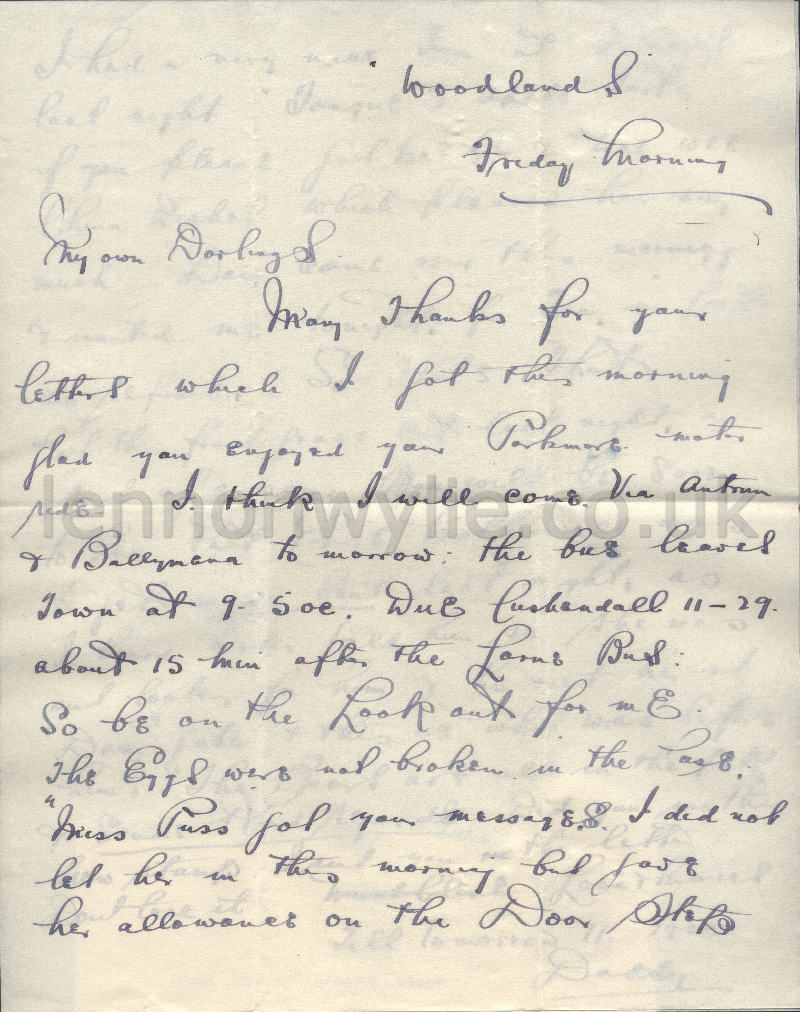 "WoodlandS
Friday Morning
My own DarlingS
Many Thanks for your
letterS which I got this morning
glad you enjoyed your Parkmore motor
ride I. think I will come. Via Antrim
& Ballymena to morrow: the bus leaves
Town at 9- 5 oc. DuE Cushendall 11-29.
about 15 min after the Larne BuS:
So be on the Look out for mE.
The EggS were not broken in the Case.
"Miss Puss got your messageS. I did not
let her in this morning but gave
her allowance on the Door Step
lennonwylie.co.uk